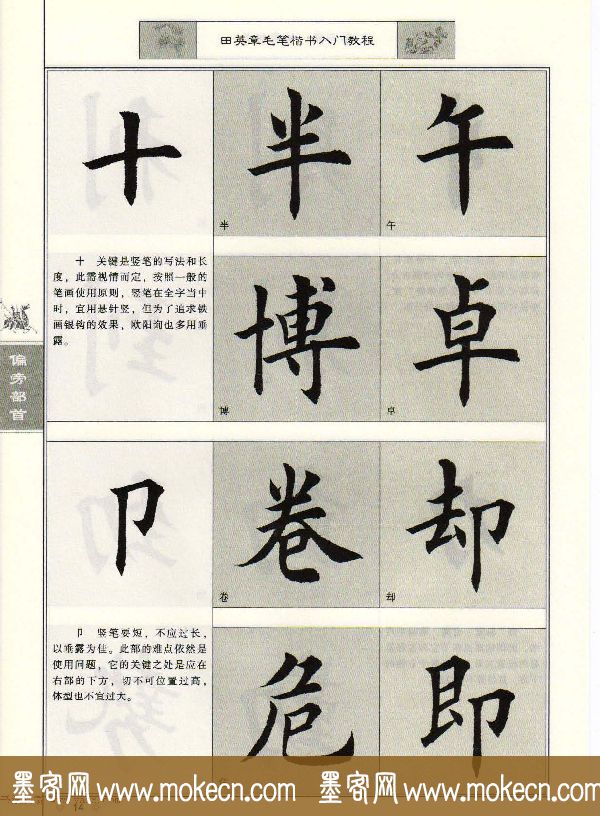 田英章毛笔楷书入门教程
十 半 午
半 午
十 关键是竖笔的写法和长
度，此需视情而定，按照一般的
笔画使用原则，竖笔在全字当中
时，宜用悬针竖，但为了追求铁
画银钩的效果，欧阳询也多用垂
露。
博 卓
博 卓
偏旁部首
卩 卷 却
卷 却
卩 竖笔要短，不应过长，
以垂露为佳。此部的难点依然是
使用问题，它的关键之处是应在
右部的下方，切不可位置过高，
体型也不宜过大。
危 即
墨客网 www.mokecn.com 墨客网 www.mokecn.com